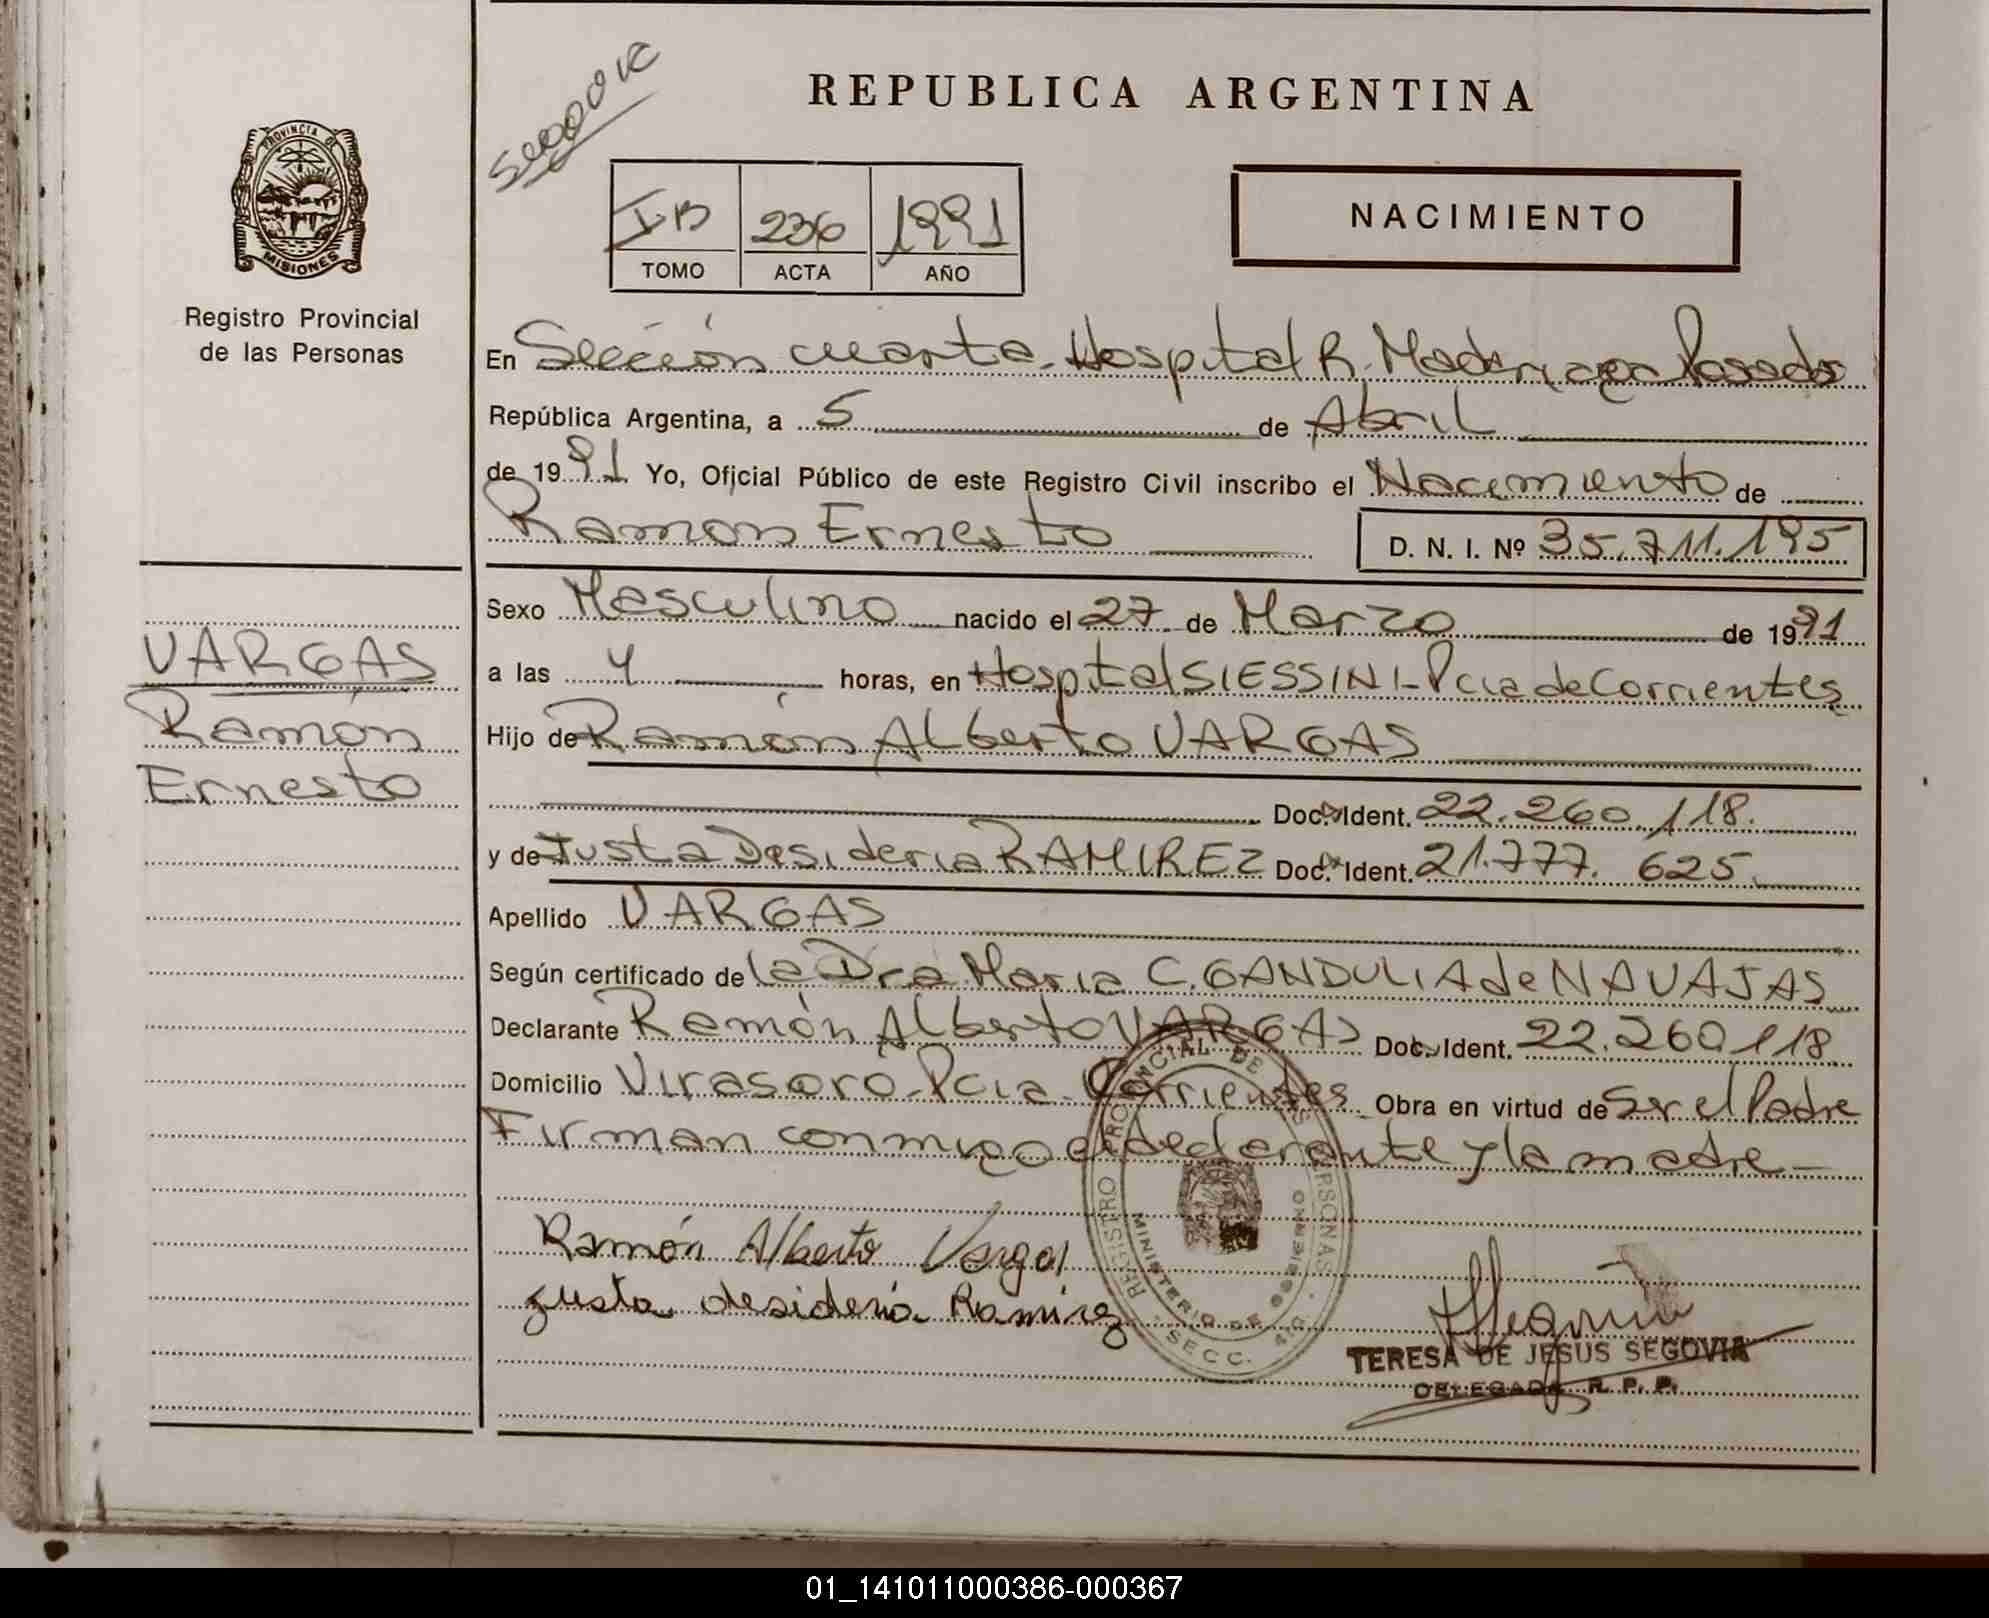 REPUBLICA ARGENTINA
PROVINCIA DE
MISIONES
Registro Provincial
de las Personas
IB 236 1991
TOMO ACTA AÑO
NACIMIENTO
En Sección cuarta - Hospital R. Madariaga Posadas
República Argentina, a 5 de Abril
de 1991 Yo, Oficial Público de este Registro Civil inscribo el Nacimiento de
Ramón Ernesto D. N. I. Nº 35.711.195
Sexo Masculino nacido el 27 de Marzo de 1991
a las 4 horas, en Hospital SIESSINI - Pcia de Corrientes
Hijo de Ramón Alberto VARGAS
Doc. Ident. 22.260.118.
y de Justa Desideria RAMIREZ Doc. Ident. 21.777.625.
Apellido VARGAS
Según certificado de la Dra. Maria C. GANDULIA de NAVAJAS
Declarante Ramón Alberto VARGAS Doc. Ident. 22.260118
Domicilio Virasoro - Pcia - Corrientes Obra en virtud de Ser el Padre
Firman conmigo el declarante y la madre -
VARGAS
Ramón
Ernesto
Ramón Alberto Vargas
Justa desideria Ramirez
REGISTRO PROVINCIAL DE LAS PERSONAS
MINISTERIO DE GOBIERNO
SECC. 4ta
TERESA DE JESUS SEGOVIA
DELEGADA R. P. P.
01_141011000386-000367